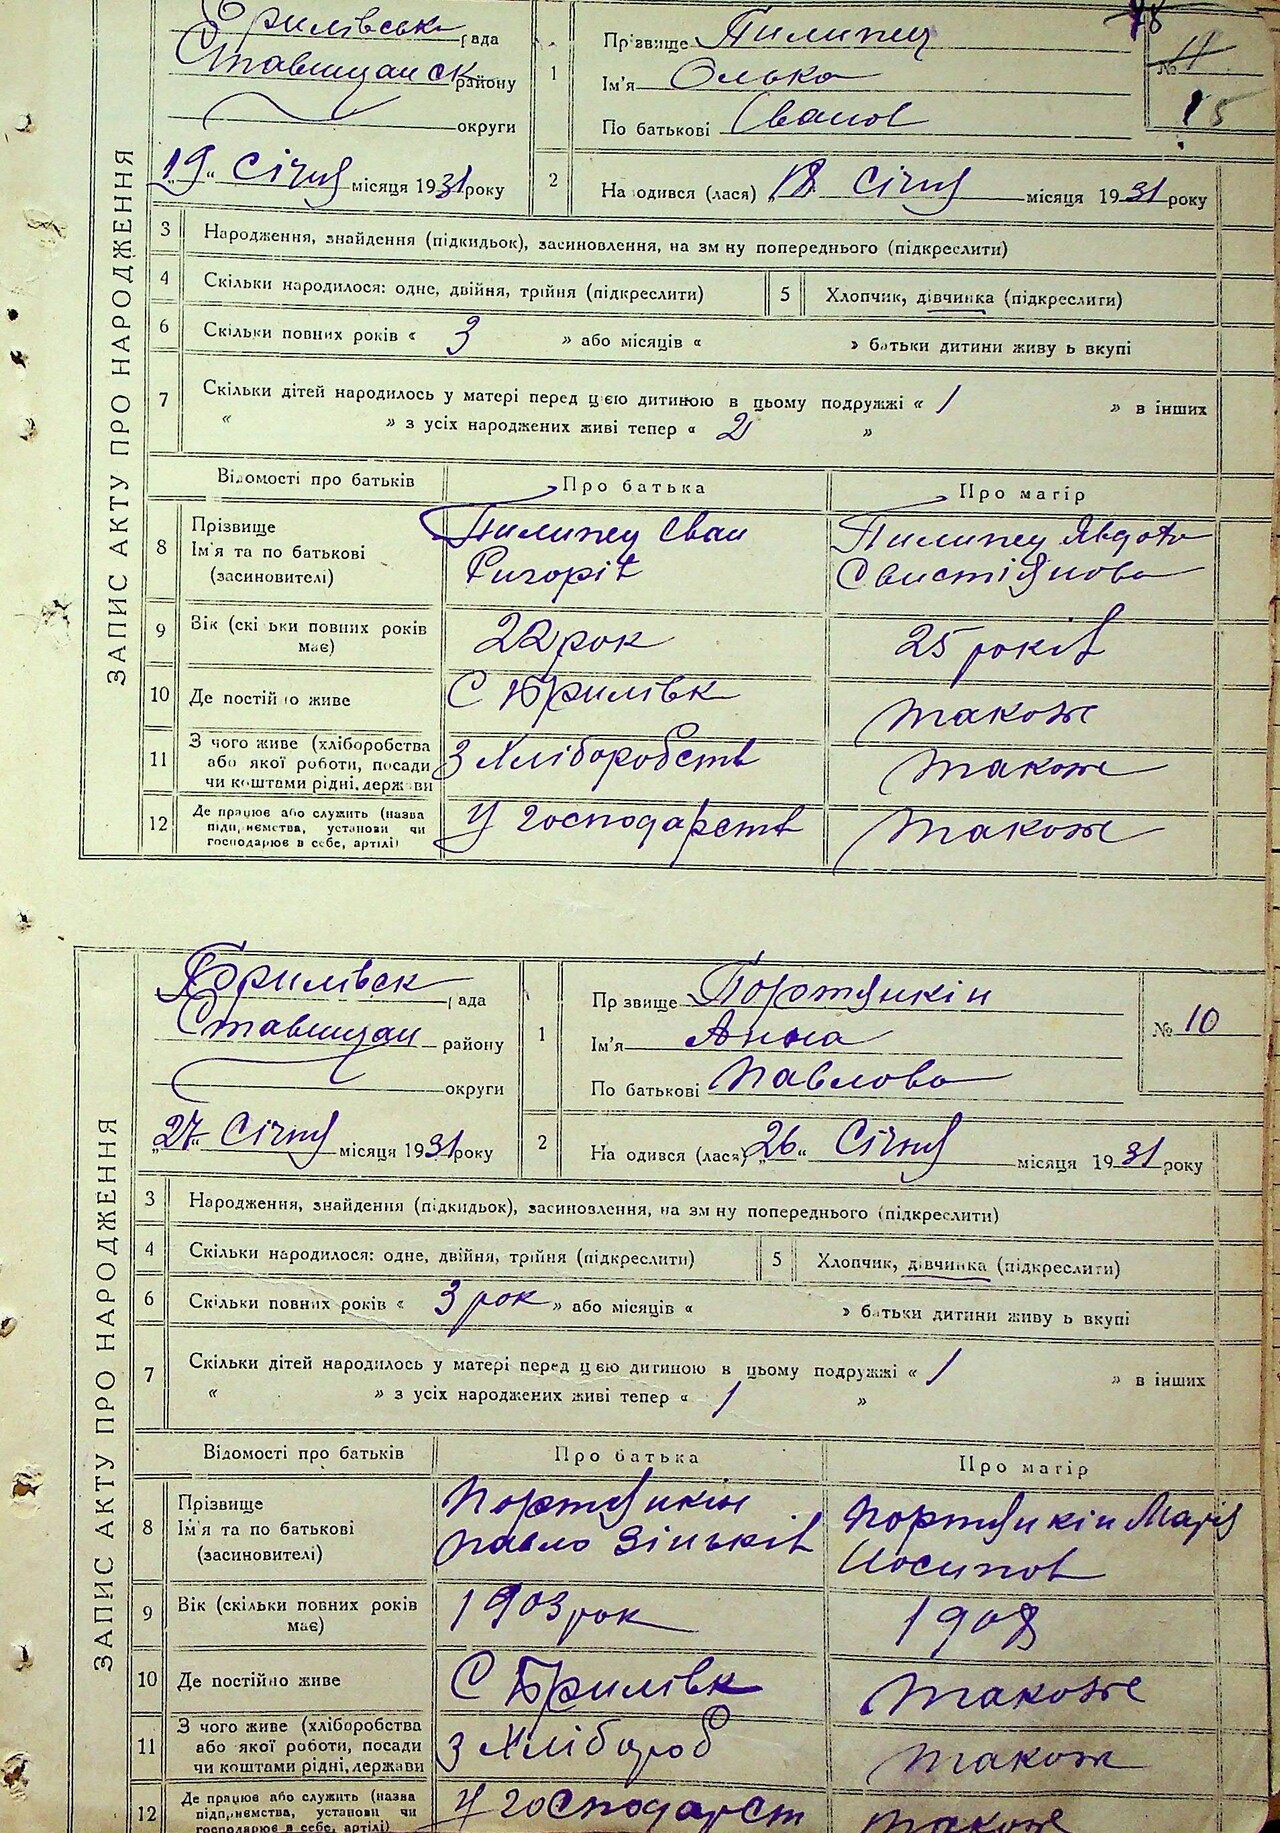 ЗАПИС АКТУ ПРО НАРОДЖЕННЯ
рада
Ставищанск району
округи
„19“ Січня місяця 1931 року
1
Прізвище Пилипец
Ім'я Олька
По батькові Іванов
78
№ 11
15
2 На одився (лася) „18 Січня місяця 1931 року
3 Народження, знайдення (підкидьок), засиновлення, на зм ну попереднього (підкреслити)
4 Скільки народилося: одне, двійня, трійня (підкреслити)
5 Хлопчик, дівчинка (підкреслити)
6 Скільки повних років « 3 » або місяців « » батьки дитини живу ь вкупі
7 Скільки дітей народилось у матері перед цією дитиною в цьому подружжі « 1 » в інших
« » з усіх народжених живі тепер « 2 »
Відомості про батьків Про батька Про матір
8 Прізвище
Ім'я та по батькові
(засиновителі)
Пилипец Іван
Ригорів
Пилипец Явдота
Свистіянова
9 Вік (скі ьки повних років
має)
22 рок
25 років
10 Де постійно живе
С Брилівк
також
11 З чого живе (хліборобства
або якої роботи, посади
чи коштами рідні, держави
З Хліборобств
також
12 Де працює або служить (назва
підприємства, установи чи
господарює в себе, артілі)
У господарств
також
ЗАПИС АКТУ ПРО НАРОДЖЕННЯ
Брилівск рада
Ставищан району
округи
„27“ Січня місяця 1931 року
1
Пр звище Портянкін
Ім'я Анна
По батькові Павлова
№ 10
2 На одився (лася) „26“ Січня місяця 1931 року
3 Народження, знайдення (підкидьок), засиновлення, на зм ну попереднього (підкреслити)
4 Скільки народилося: одне, двійня, трійня (підкреслити)
5 Хлопчик, дівчинка (підкреслити)
6 Скільки повних років « 3 рок » або місяців « » батьки дитини живу ь вкупі
7 Скільки дітей народилось у матері перед цією дитиною в цьому подружжі « 1 » в інших
« » з усіх народжених живі тепер « 1 »
Відомості про батьків Про батька Про матір
8 Прізвище
Ім'я та по батькові
(засиновителі)
Портянкін
Павло Зіньків
Портянкін Марія
Иосипов
9 Вік (скільки повних років
має)
1903 рок
1908
10 Де постійно живе
С Брилівк
також
11 З чого живе (хліборобства
або якої роботи, посади
чи коштами рідні, держави
З Хлібороб
також
12 Де працює або служить (назва
підприємства, установи чи
господарює в себе, артілі)
У господарст
також